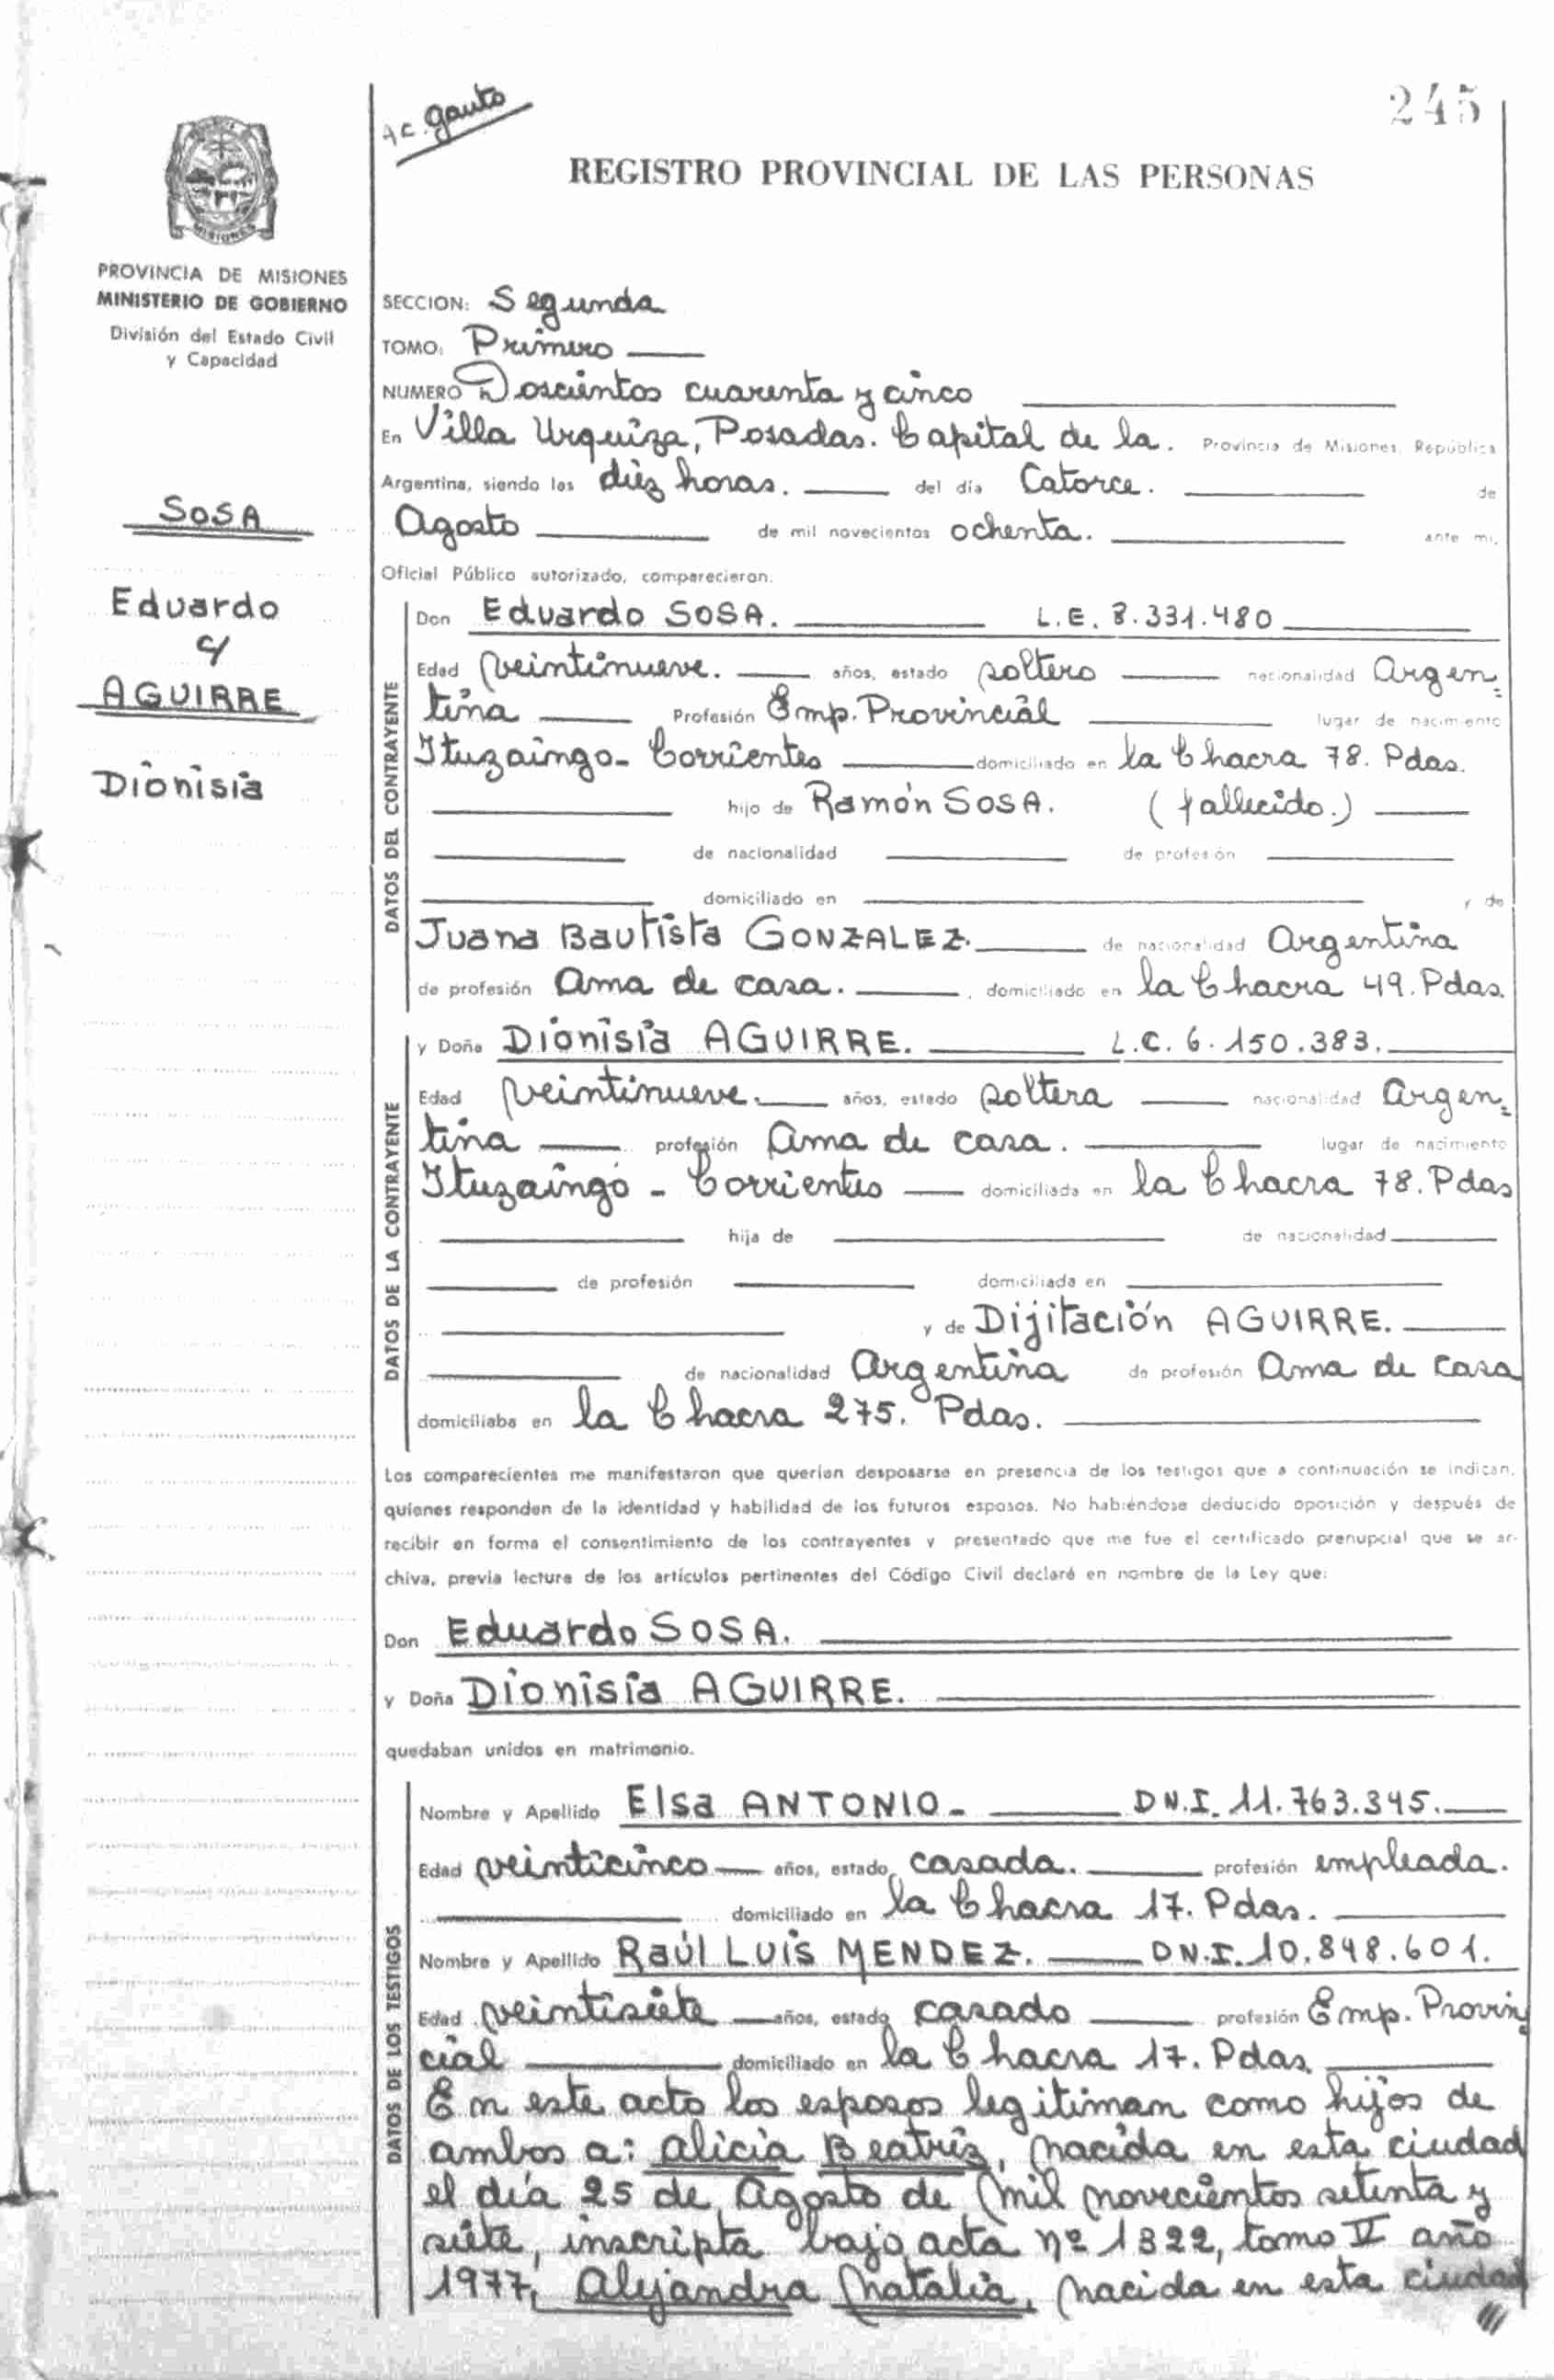 245
Ac. Gauto
REGISTRO PROVINCIAL DE LAS PERSONAS
MISIONES
PROVINCIA DE MISIONES
MINISTERIO DE GOBIERNO
División del Estado Civil
y Capacidad
SOSA
Eduardo
c/
AGUIRRE
Dionisia
SECCION: Segunda
TOMO: Primero
NUMERO Doscientos cuarenta y cinco
En Villa Urquiza, Posadas. Capital de la. Provincia de Misiones, República
Argentina, siendo las diez horas. del día Catorce. de
Agosto de mil novecientos ochenta. ante mi,
Oficial Público autorizado, comparecieron:
DATOS DEL CONTRAYENTE
Don Eduardo SOSA. L.E. 8.331.480
Edad veintinueve. años, estado soltero nacionalidad Argen=
tina Profesión Emp. Provincial lugar de nacimiento
Ituzaingo - Corrientes domiciliado en la Chacra 78. Pdas.
hijo de Ramón SOSA. (fallecido.)
de nacionalidad de profesión
domiciliado en y de
Juana Bautista GONZALEZ. de nacionalidad Argentina
de profesión Ama de casa. domiciliado en la Chacra 49. Pdas.
DATOS DE LA CONTRAYENTE
y Doña Dionisia AGUIRRE. L.C. 6.150.383.
Edad veintinueve. años, estado soltera nacionalidad Argen=
tina profesión Ama de casa. lugar de nacimiento
Ituzaingó - Corrientes domiciliada en la Chacra 78. Pdas
hija de de nacionalidad
de profesión domiciliada en
y de Dijitación AGUIRRE.
de nacionalidad Argentina de profesión Ama de casa
domiciliaba en la Chacra 275. Pdas.
Los comparecientes me manifestaron que querían desposarse en presencia de los testigos que a continuación se indican,
quienes responden de la identidad y habilidad de los futuros esposos. No habiéndose deducido oposición y después de
recibir en forma el consentimiento de los contrayentes y presentado que me fue el certificado prenupcial que se ar-
chiva, previa lectura de los artículos pertinentes del Código Civil declaré en nombre de la Ley que:
Don Eduardo SOSA.
y Doña Dionisia AGUIRRE.
quedaban unidos en matrimonio.
DATOS DE LOS TESTIGOS
Nombre y Apellido Elsa ANTONIO - D N.I. 11.763.345.
Edad veinticinco años, estado casada. profesión empleada.
domiciliado en la Chacra 17. Pdas.
Nombre y Apellido Raúl LUIS MENDEZ. DN.I. 10.848.601.
Edad veintisiete años, estado casado profesión Emp. Provin
cial domiciliado en la Chacra 17. Pdas.
En este acto los esposos legitiman como hijos de
ambos a: Alicia Beatriz, nacida en esta ciudad
el día 25 de Agosto de mil novecientos setenta y
siete, inscripta bajo acta nº 1322, tomo II año
1977, Alejandra Natalia, nacida en esta ciudad